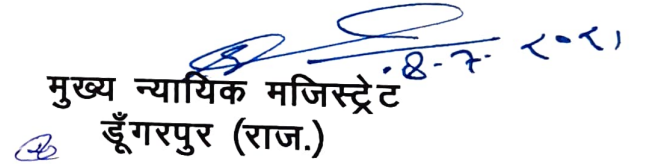 8-7-२०२१
मुख्य न्यायिक मजिस्ट्रेट
डूँगरपुर (राज.)